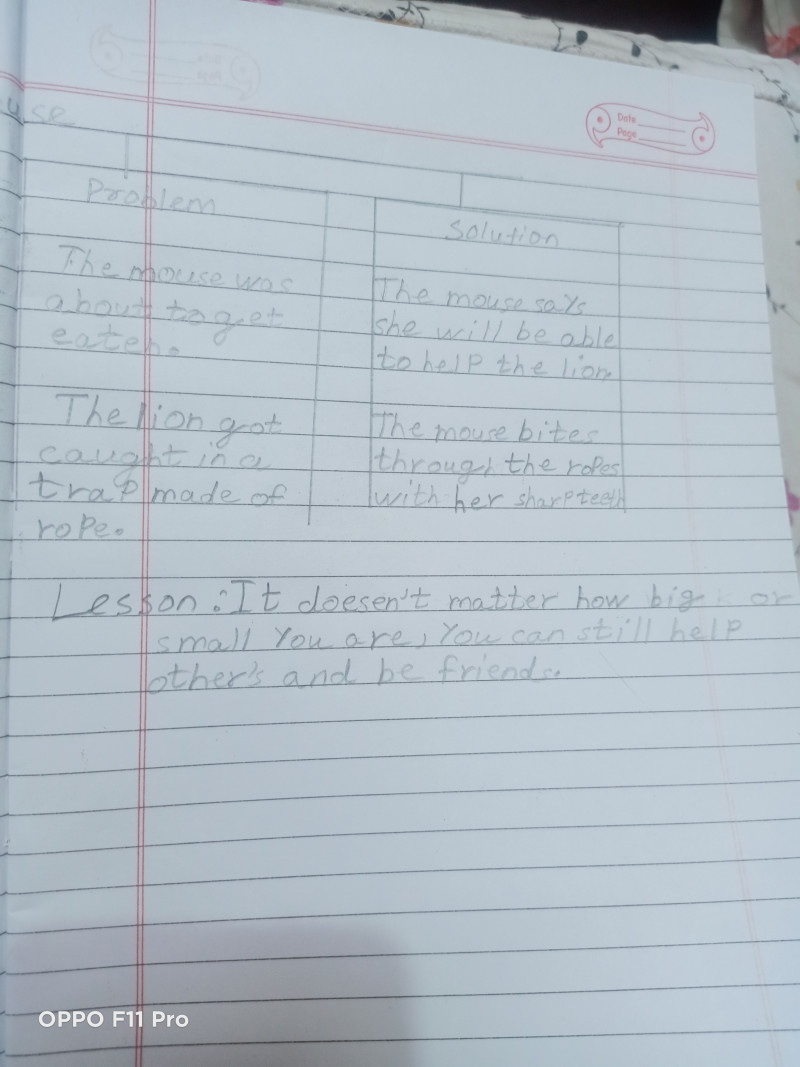 use
Date
Page
Problem
The mouse was
about to get
eaten.
The lion got
caught in a
trap made of
rope.
Solution
The mouse says
she will be able
to help the lion
The mouse bites
through the ropes
with her sharp teeth
Lesson: It doesen't matter how big or
small you are, you can still help
other's and be friends.
OPPO F11 Pro